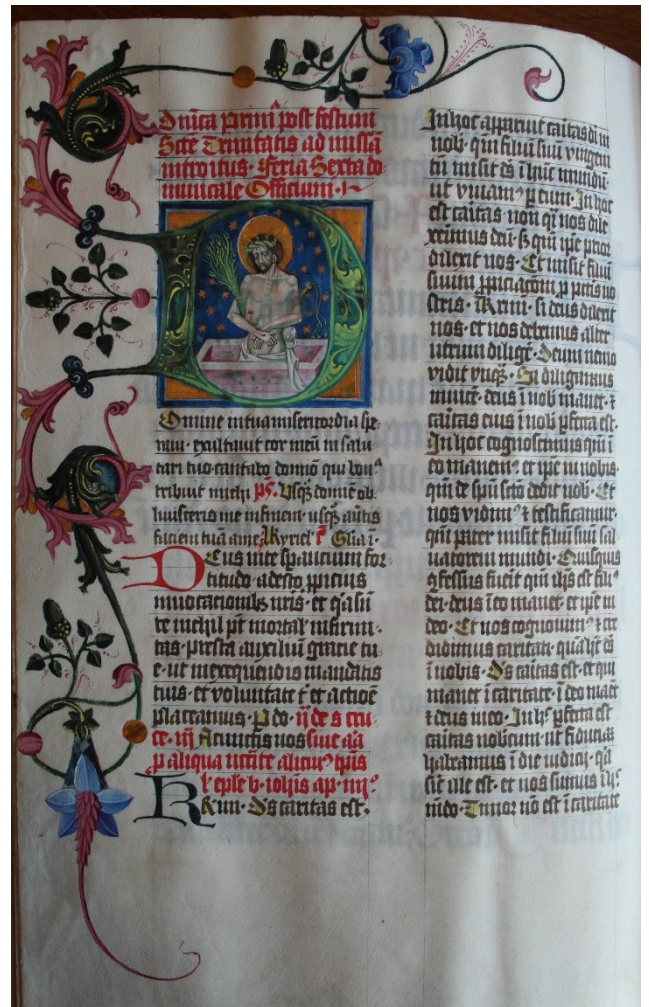 Dnica prima post festum
Scte Trinitatis ad missā
introitus. Feria Sexta do
minicale Officium.
Domine in tua misericordia spe
raui. exultauit cor meū in salu
tari tuo. cantabo domino qui bona
tribuit michi ps. Usq̄ domine ob
liuisceris me in finem. usq̄ auertis
faciem tuā a me. Kyriel. Glīa ī
Deus in te sperancium for
titudo. adesto ppicius
inuocacionibz nrīs. et qa sine
te nichil pt mortal infirmi
tas. presta auxiliū gracie tu
e. ut in exequendis mandatis
tuis. et voluntate t et actione
placeamus. P do. ij de s cru
ce. iij A cunctis nos siue alia
p aliqua
eple b. iohis ap. iiij
Krmi. Ds caritas est.
In hoc apparuit caritas di in
nob. qm filium suū vnigeni
tū misit ds ī hunc mundū
ut viuamꝰ p eum. In hoc
est caritas. non qi nos dile
xerimus deū. sz qm ipe prior
dilexit nos. Et misit filiū
suum ppiciacōem p pctis no
stris. Krmi. si deus dilexit
nos. et nos debemus alter
utrum diligē. Deum nemo
vidit vnqz. Si diligamus
inuicē. deus ī nob manet. ⁊
caritas eius ī nob pfecta est.
In hoc cognoscimus qm ī
eo manemꝰ et ipe in nobis.
qm de spū scto dedit nob. Et
nos vidimꝰ ⁊ testificamur.
qm pater misit filiū suū sal
uatorem mundi. Quisquis
ꝯfessus fuerit qm ihs est filiꝰ
dei. deus ī eo manet. et ipe in
deo. Et nos cognouimꝰ ⁊ cre
didimus caritati. quā ht ds
ī nobis. Ds caritas est. et qui
manet ī caritate. ī deo manet
⁊ deus in eo. In hꝰ pfecta est
caritas nobcum. ut fiduciā
habeamus ī die iudicij. qa
sic ille est. et nos sumus ī hꝰ
mūdo. Timor nō est ī caritate